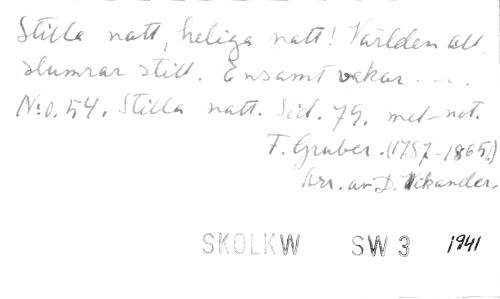 Stilla natt, heliga natt! Världen all
slumrar still. Ensamt vakar . – .
N:o. 54. Stilla natt. Sid. 79. med not.
F. Gruber. (1787–1865.)
Arr. av D. Wikander.
SKOLKW SW 3 1941